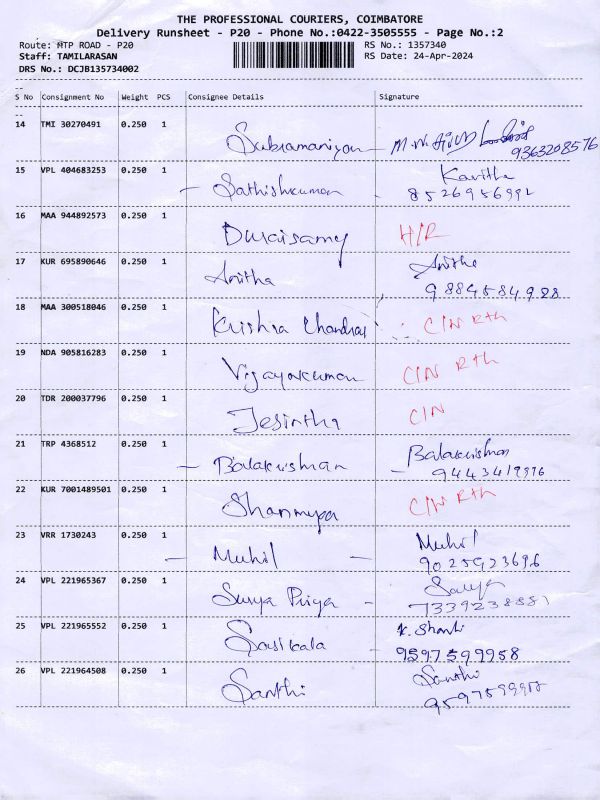 THE PROFESSIONAL COURIERS, COIMBATORE
Delivery Runsheet - P20 - Phone No.:0422-3505555 - Page No.:2
Route: MTP ROAD - P20 RS No.: 1357340
Staff: TAMILARASAN RS Date: 24-Apr-2024
DRS No.: DCJB135734002
S No Consignment No Weight PCS Consignee Details Signature
14 TMI 30270491 0.250 1 Subramaniyan
9363208576
15 VPL 404683253 0.250 1 Sathishkumar Kavitha
8526956992
16 MAA 944892573 0.250 1 Duraisamy H/R
17 KUR 695890646 0.250 1 Anitha Anitha
9884584988
18 MAA 300518046 0.250 1 Krishna Chandran C/N Rth
19 NDA 905816283 0.250 1 Vijayakumar C/N Rth
20 TDR 200037796 0.250 1 Jesintha C/N
21 TRP 4368512 0.250 1 Balakrishnan Balakrishnan
22 KUR 7001489501 0.250 1 Shanmuga C/N Rth
23 VRR 1730243 0.250 1 Muhil Muhil
9025923696
24 VPL 221965367 0.250 1 Surya Priya Surya
7339238881
25 VPL 221965552 0.250 1 Sasikala K. Shanthi
9597599958
26 VPL 221964508 0.250 1 Santhi Santhi
9597599958